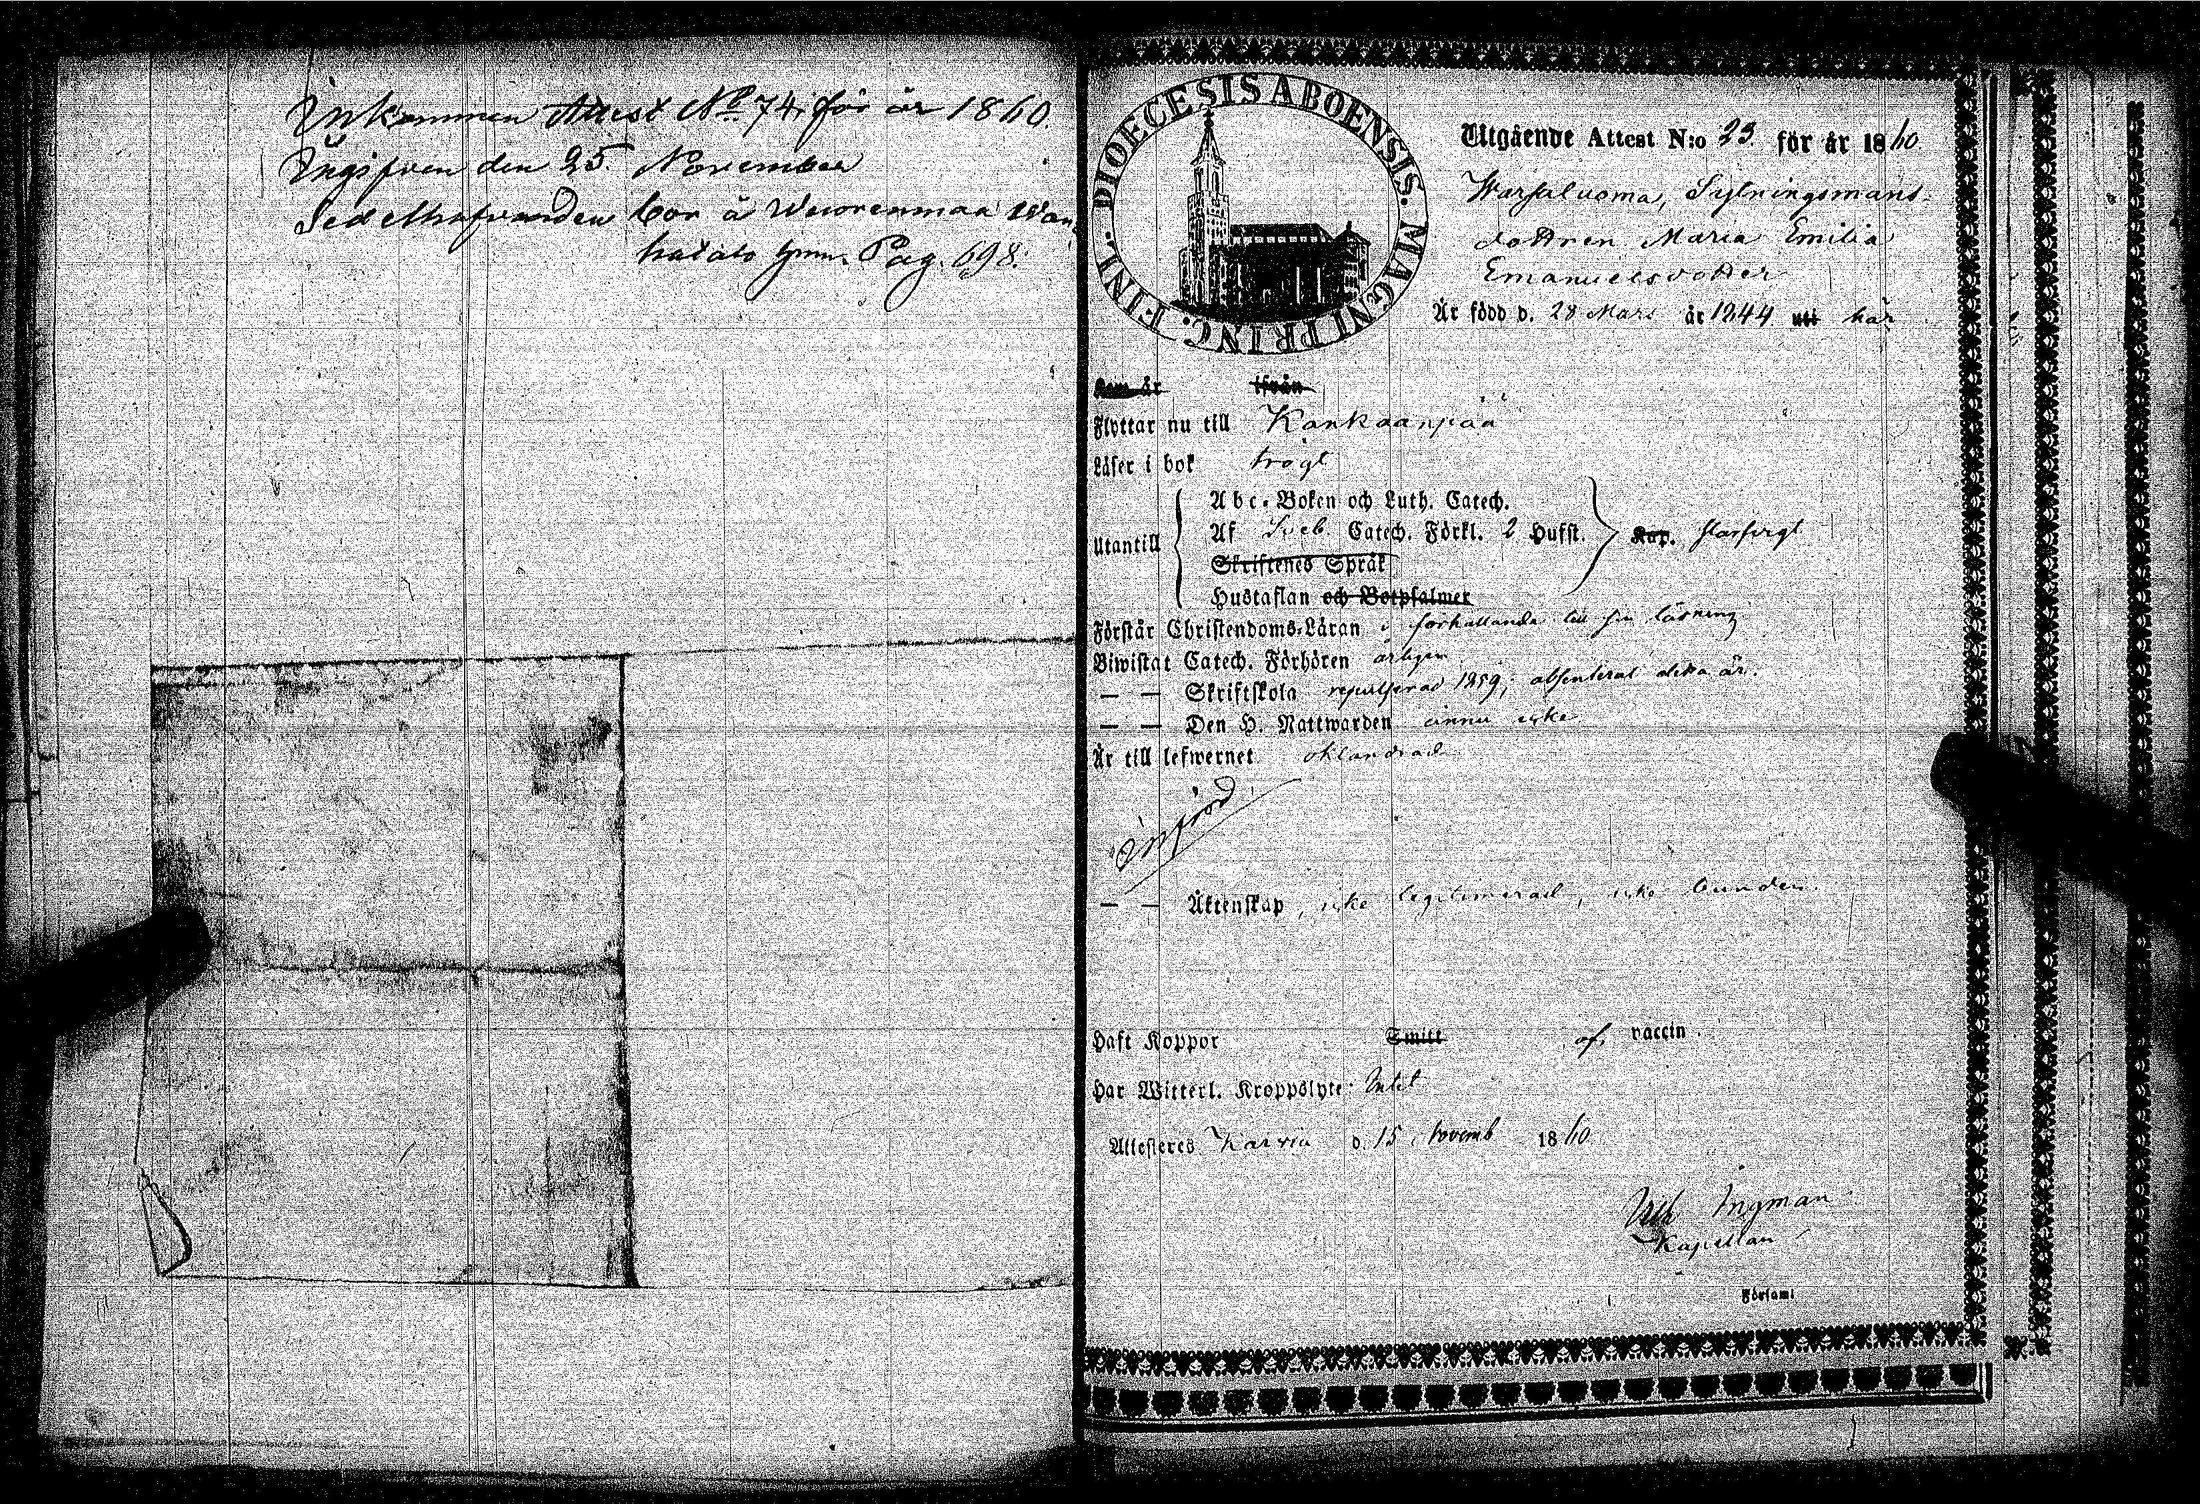 Inkommen Attest No. 74, för år 1860
Ingifven den 25. November
Sedelhafvanden bor å Wuorenmaa Wan-
hatalo hmn. Pag. 698.
DIOECESIS ABOENSIS. MAGNI PRINC. FINL.
Utgående Attest N:o 23. för år 1860.
Sytningsmans-
dottren Maria Emilia
Emanuelsdotter
Är född d. 28 Mars år 1844 uti här
Som är ifrån
Flyttar nu till Kankaanpää
Läser i bok trögt
Utantill
Abc-Boken och Luth. Catech.
Af Sveb Catech. Förkl. 2 Hufst.
Kap. svagt
Skriftenes Språk
Hustaflan och Botpsalmer
Förstår Christendoms-Läran i förhållande till sin läsning
Biwistat Catech. Förhören årligen
— — Skriftskola 1859; absenterat detta år.
— — Den H. Nattwarden ännu icke
Är till lefwernet oklandrad
Införd
— — Äktenskap, icke legitimerad, icke bunden.
Haft Koppor Smitt af vaccin.
Har Witterl. Kroppslyte Intet
Attesteres Karvia d. 15 Novemb 1860
Ingman
Kapellan
Församl